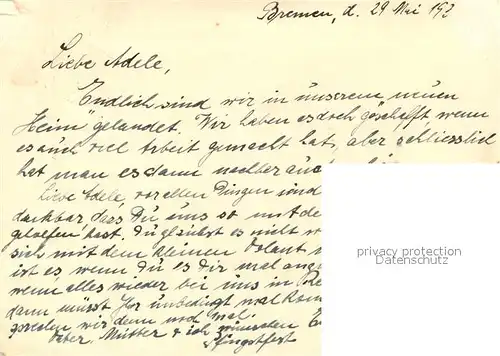 Bremen, d. 29 Mai 193
Liebe Adele,
Endlich sind wir in unserem neuen
Heim "gelandet. Wir haben es doch geschafft, wenn
es auch viel Arbeit gemacht hat, aber schliesslich
hat man es dann nachher auch
Liebe Adele, vor allen Dingen sind
dankbar dass Du uns so mit de
geholfen hast. Du glaubst es nicht w
sich mit dem kleinen
ist es wenn Du es Dir mal ang
wenn alles wieder bei uns in Re
dann müsst Ihr unbedingt mal kom
sprechen wir denn noch mal.
Vater, Mutter & ich wünschen
Pfingstfest
privacy protection
Datenschutz